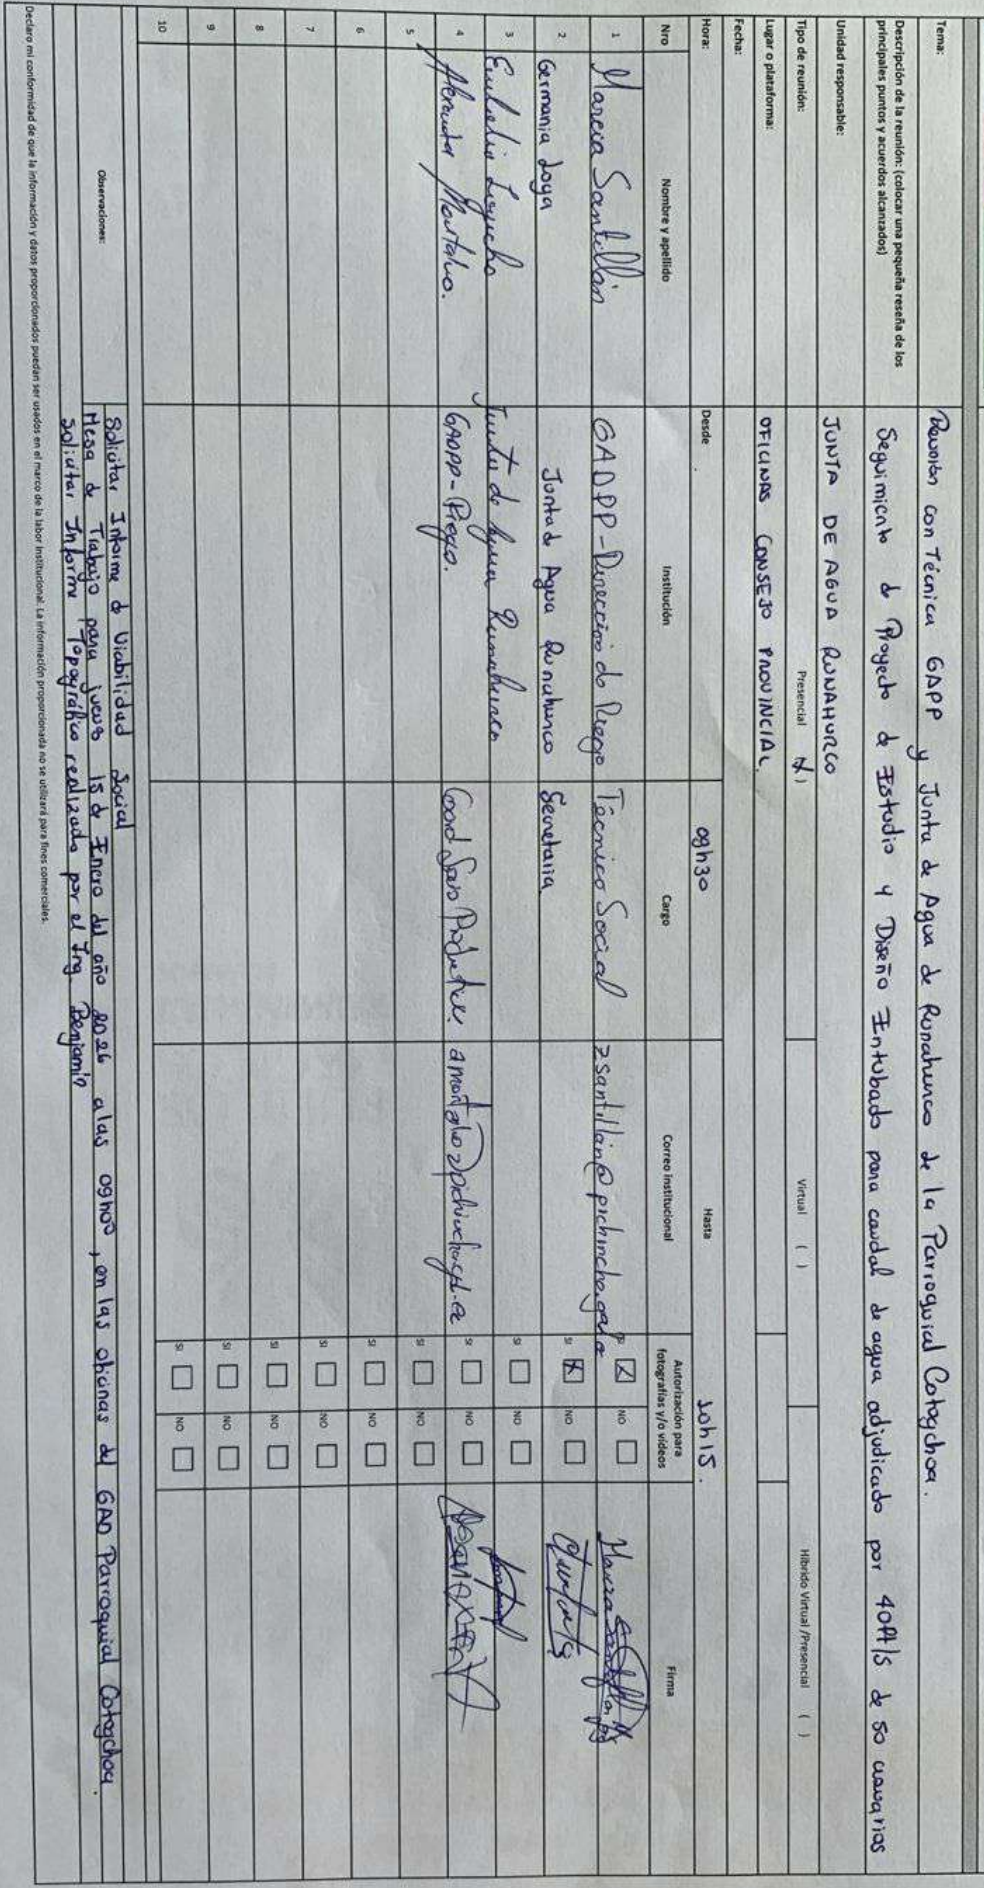 Tema: Reunión con Técnica GAPP y Junta de Agua de Runahurco de la Parroquial Cotogchoa.
Descripción de la reunión: (colocar una pequeña reseña de los principales puntos y acuerdos alcanzados) Seguimiento de Proyecto de Estudio y Diseño Intubado para caudal de agua adjudicado por 40 de 50 usuarios
Unidad responsable: JUNTA DE AGUA RUNAHURCO
Tipo de reunión: Presencial (X) Virtual ( ) Híbrido Virtual /Presencial ( )
Lugar o plataforma: OFICINAS CONSEJO PROVINCIAL.
Fecha:
Hora: Desde 09h30 Hasta 10h15.
Nro Nombre y apellido Institución Cargo Correo institucional Autorización para fotografías y/o videos Firma
1 Marcia Santillán GADPP-Dirección de Riego Técnico Social zsantillan@pichincha SI NO
2 Germania Loya Junta de Agua Runahurco Secretaria SI NO
3 Junta de Agua Runahurco SI NO
4 Alexander Montalvo. GADPP-Riego. SI NO
5 SI NO
6 SI NO
7 SI NO
8 SI NO
9 SI NO
10 SI NO
Observaciones: Solicitar Informe de Viabilidad Social
Mesa de Trabajo para jueves 15 de Enero del año 2026 a las 09h00, en las oficinas del GAD Parroquial Cotogchoa.
Solicitar Informe Topográfico realizado por el Ing. Benjamín
Declaro mi conformidad de que la información y datos proporcionados puedan ser usados en el marco de la labor institucional. La información proporcionada no se utilizará para fines comerciales.